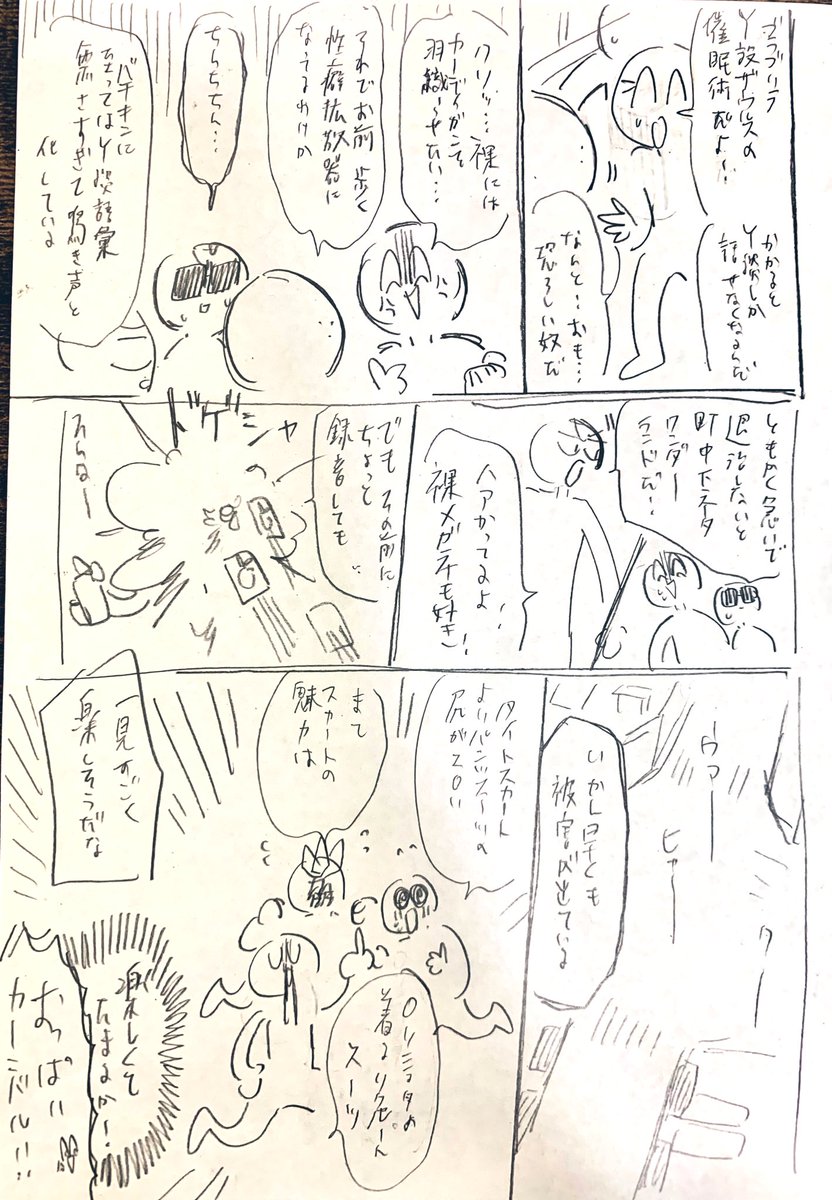 ゴブリラ
Y談ザウルスの
催眠術だよ!!
かかると
Y談しか
話せなくなるんだ
なんと…おも…
恐ろしい奴だ
クソッ…裸には
カーディガンを
羽織らせたい…
それでお前 歩く
性癖拡散器に
なってるわけか
ちんちちん…
バチキンに
至ってはY談語彙
無さすぎて鳴き声と
化している
ともかく急いで
退治しないと
町中下ネタ
ワンダー
ランドだ!!
ハアかってるよ!
裸メガネも好き!
でもその前に
ちょっと
録音しても…
いかん早くも
被害が出ている
ヴァー
ヒャー
ワー
タイトスカート
よりパンツスーツの
尻がエロい
まて
スカートの
魅力は
着るリクルート
スーツ
一見すごく
楽しそうだな
楽しくて
たまるか!
おっぱい
カーニバル!!